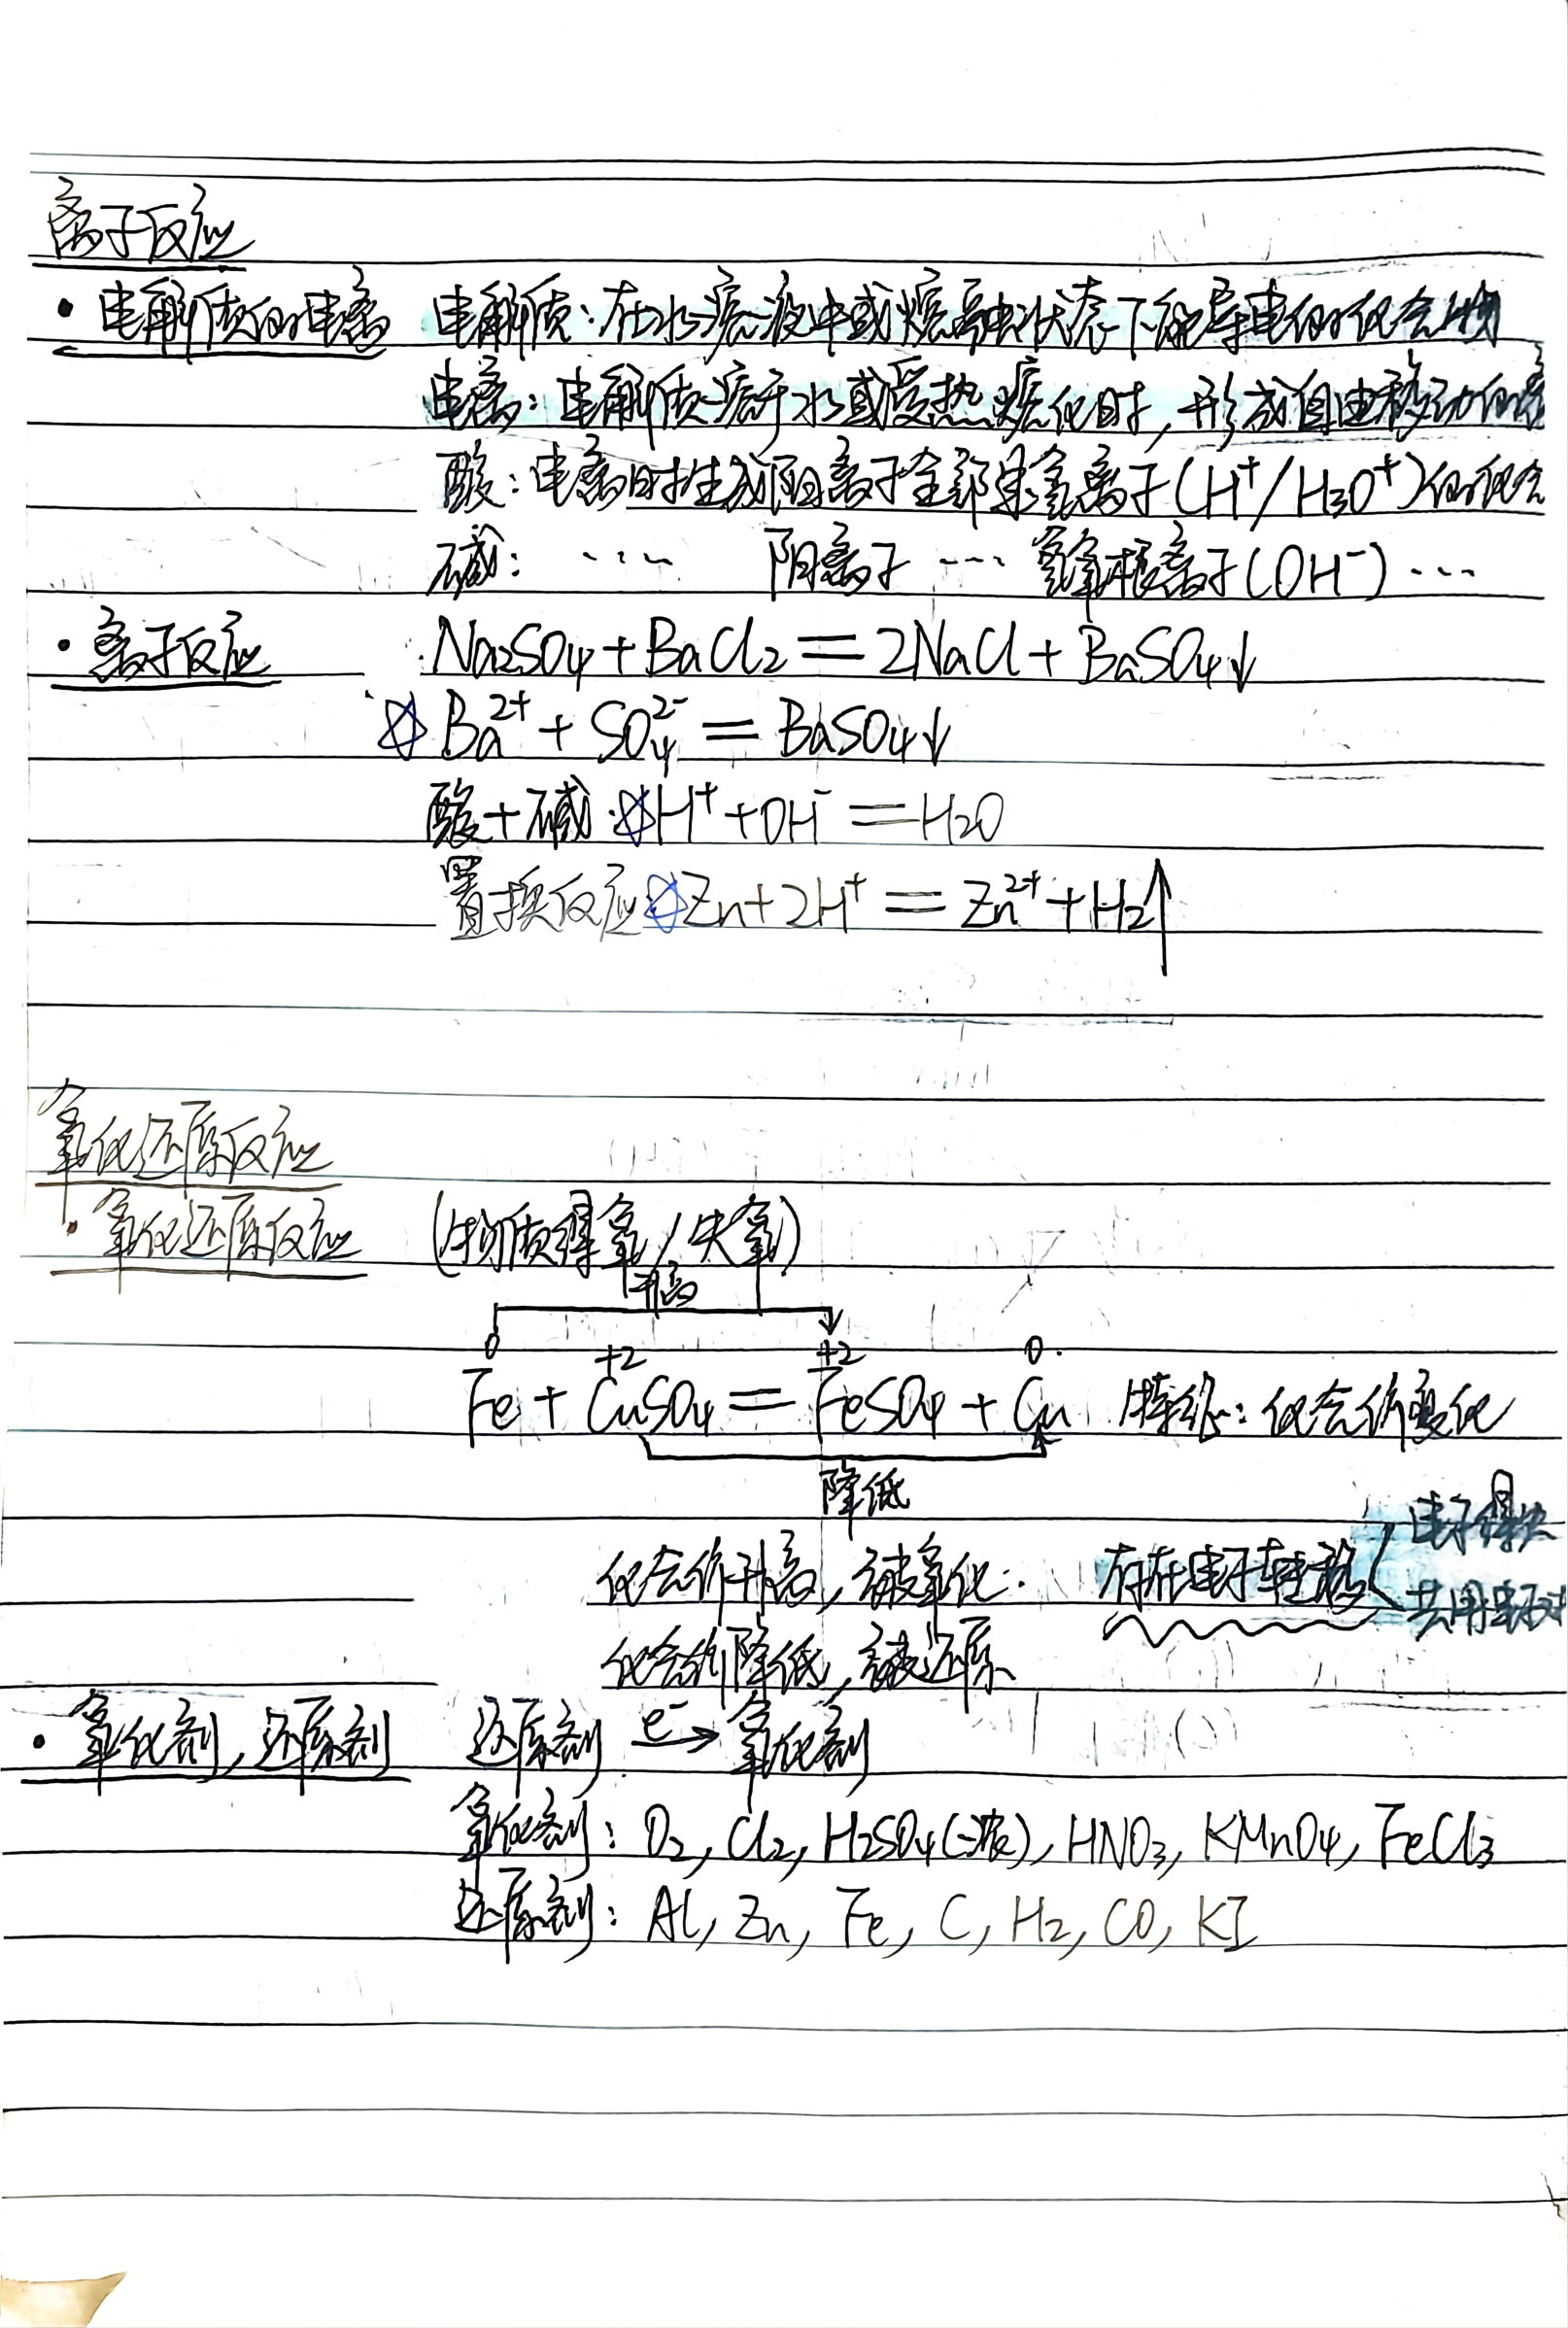 离子反应
· 电解质的电离 电解质：在水溶液中或熔融状态下能导电的化合物
电离：电解质溶于水或受热熔化时，形成自由移动的离
酸：电离时生成阳离子全部是氢离子(H⁺/H₃O⁺)的化合
碱：…… 阴离子 … 氢氧根离子(OH⁻)…
· 离子反应 Na₂SO₄+BaCl₂=2NaCl+BaSO₄↓
☆Ba²⁺+SO₄²⁻=BaSO₄↓
酸+碱 ☆H⁺+OH⁻=H₂O
置换反应☆Zn+2H⁺=Zn²⁺+H₂↑
氧化还原反应
· 氧化还原反应 (物质得氧/失氧)
升高
0 +2 +2 0
Fe+CuSO₄=FeSO₄+Cu 特征：化合价变化
降低
电子得失
化合价升高，被氧化. 存在电子转移
共用电子对
化合价降低，被还原
· 氧化剂，还原剂 还原剂 e⁻→ 氧化剂
氧化剂：O₂, Cl₂, H₂SO₄(浓), HNO₃, KMnO₄, FeCl₃
还原剂：Al, Zn, Fe, C, H₂, CO, KI